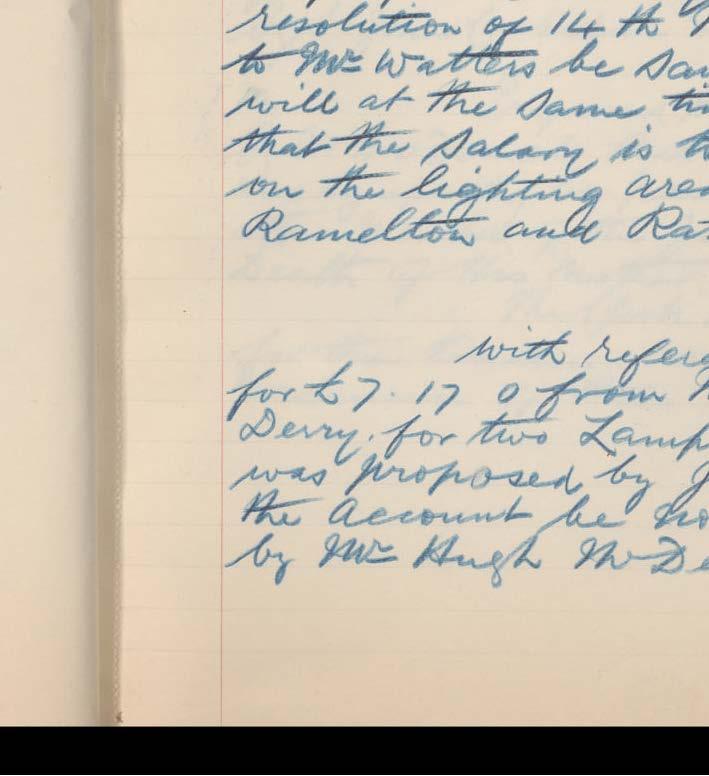 resolution of 14 th
to Mr Watters be
will at the same
that the Salary is
on the lighting
Ramelton and
with
for £7. 17 0 from
Derry. for two
was proposed by J
the Account be
by Mr Hugh